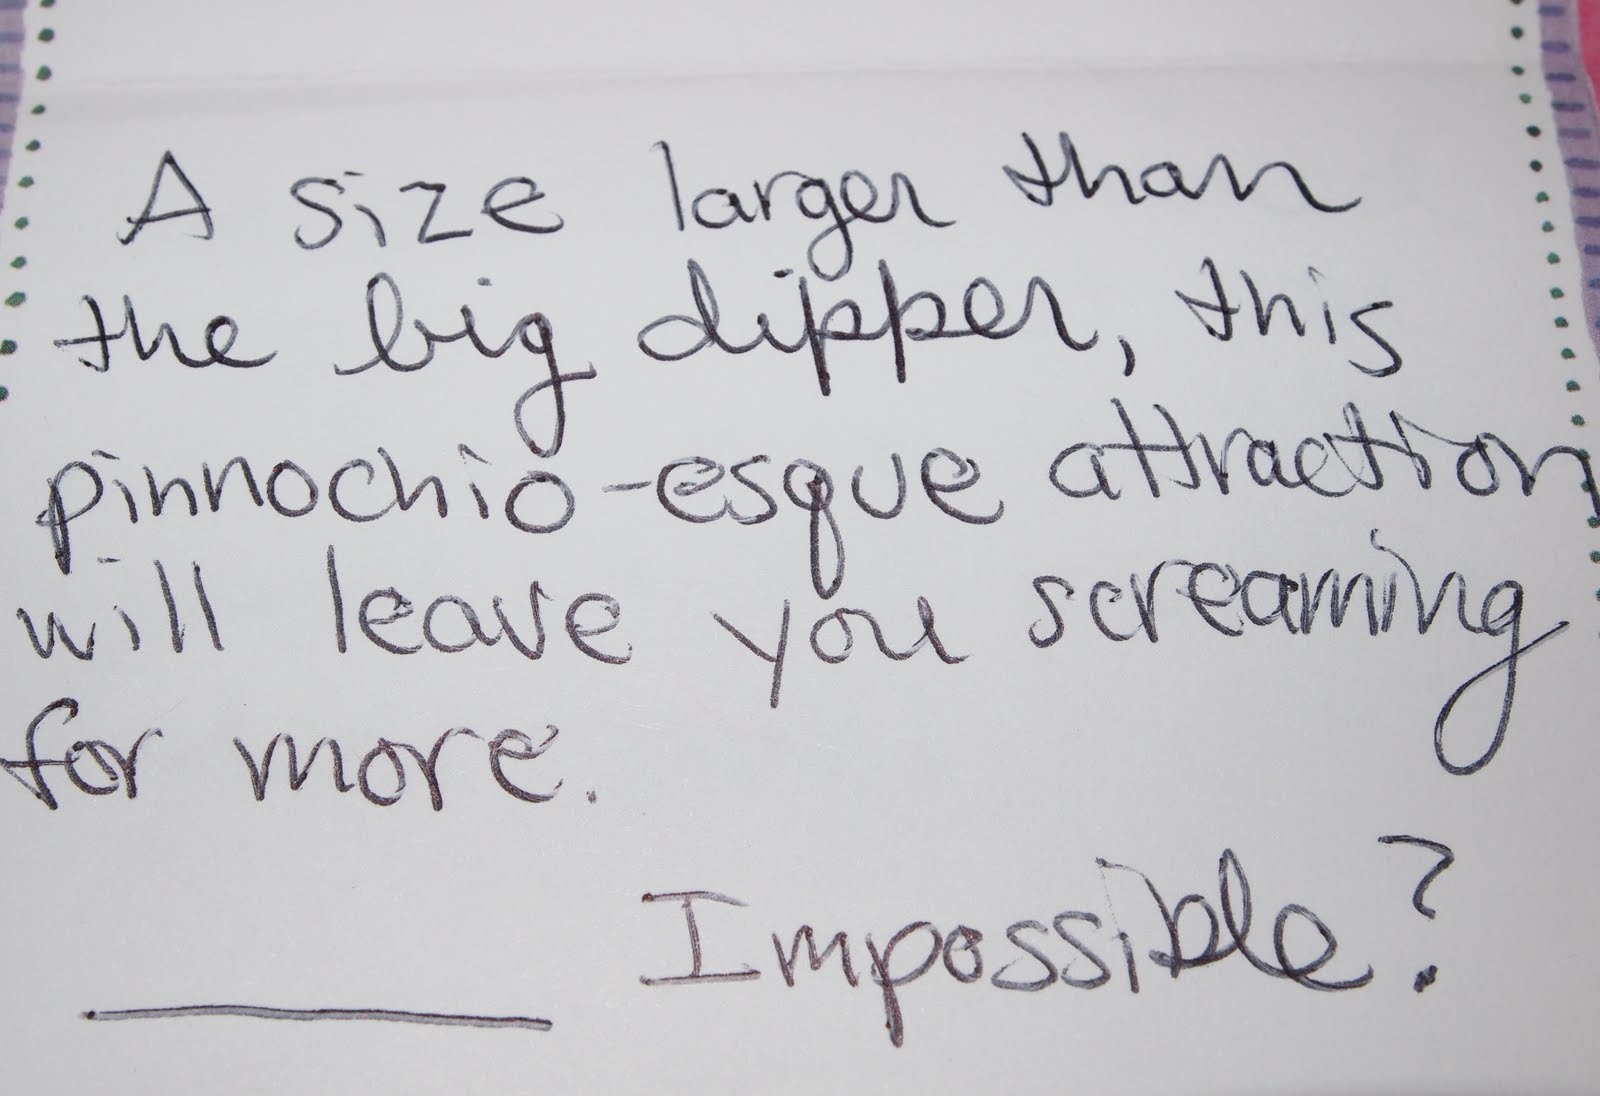 A size larger than
the big dipper, this
pinnochio-esque attraction
will leave you screaming
for more.
_________ Impossible?